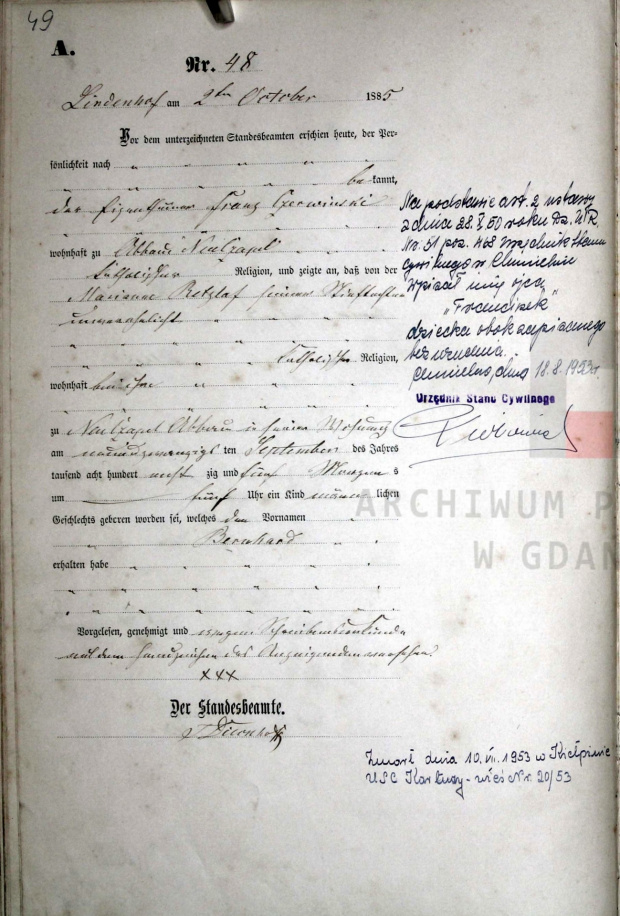 49
A.
Nr. 48
Lindenhof am 2ten October 1885
Vor dem unterzeichneten Standesbeamten erschien heute, der Per-
sönlichkeit nach
be kannt,
der Eigenthümer Franz Czerwinski
wohnhaft zu Abbau
katholischer Religion, und zeigte an, daß von der
Marianne Retzlaf seiner Stieftochter
unverehelicht
katholischer Religion,
wohnhaft bei ihm
zu Abbau in seiner Wohnung
am neunundzwanzigsten September des Jahres
tausend acht hundert acht zig und fünf Morgens
um fünf Uhr ein Kind männ lichen
Geschlechts geboren worden sei, welches den Vornamen
Bernhard
erhalten habe
Vorgelesen, genehmigt und wegen Schreibensunkunde
mit dem Handzeichen des Anzeigenden versehen.
xxx
Der Standesbeamte.
Na podstawie art. 2 ustawy
z dnia 28.X 50 roku Dz. U.R.
Nr. 51 poz. 468 urzędnik stanu
cywilnego w Chmielnie
wpisał imię ojca
„Franciszek”
dziecka obok zapisanego
bez urodzenia.
Chmielno, dnia 18.8.1953r.
Urzędnik Stanu Cywilnego
ARCHIWUM P
W GDAŃ
Zmarł dnia 10.VII.1953 w Kiełpinie
USC Kartuzy-wieś Nr. 20/53